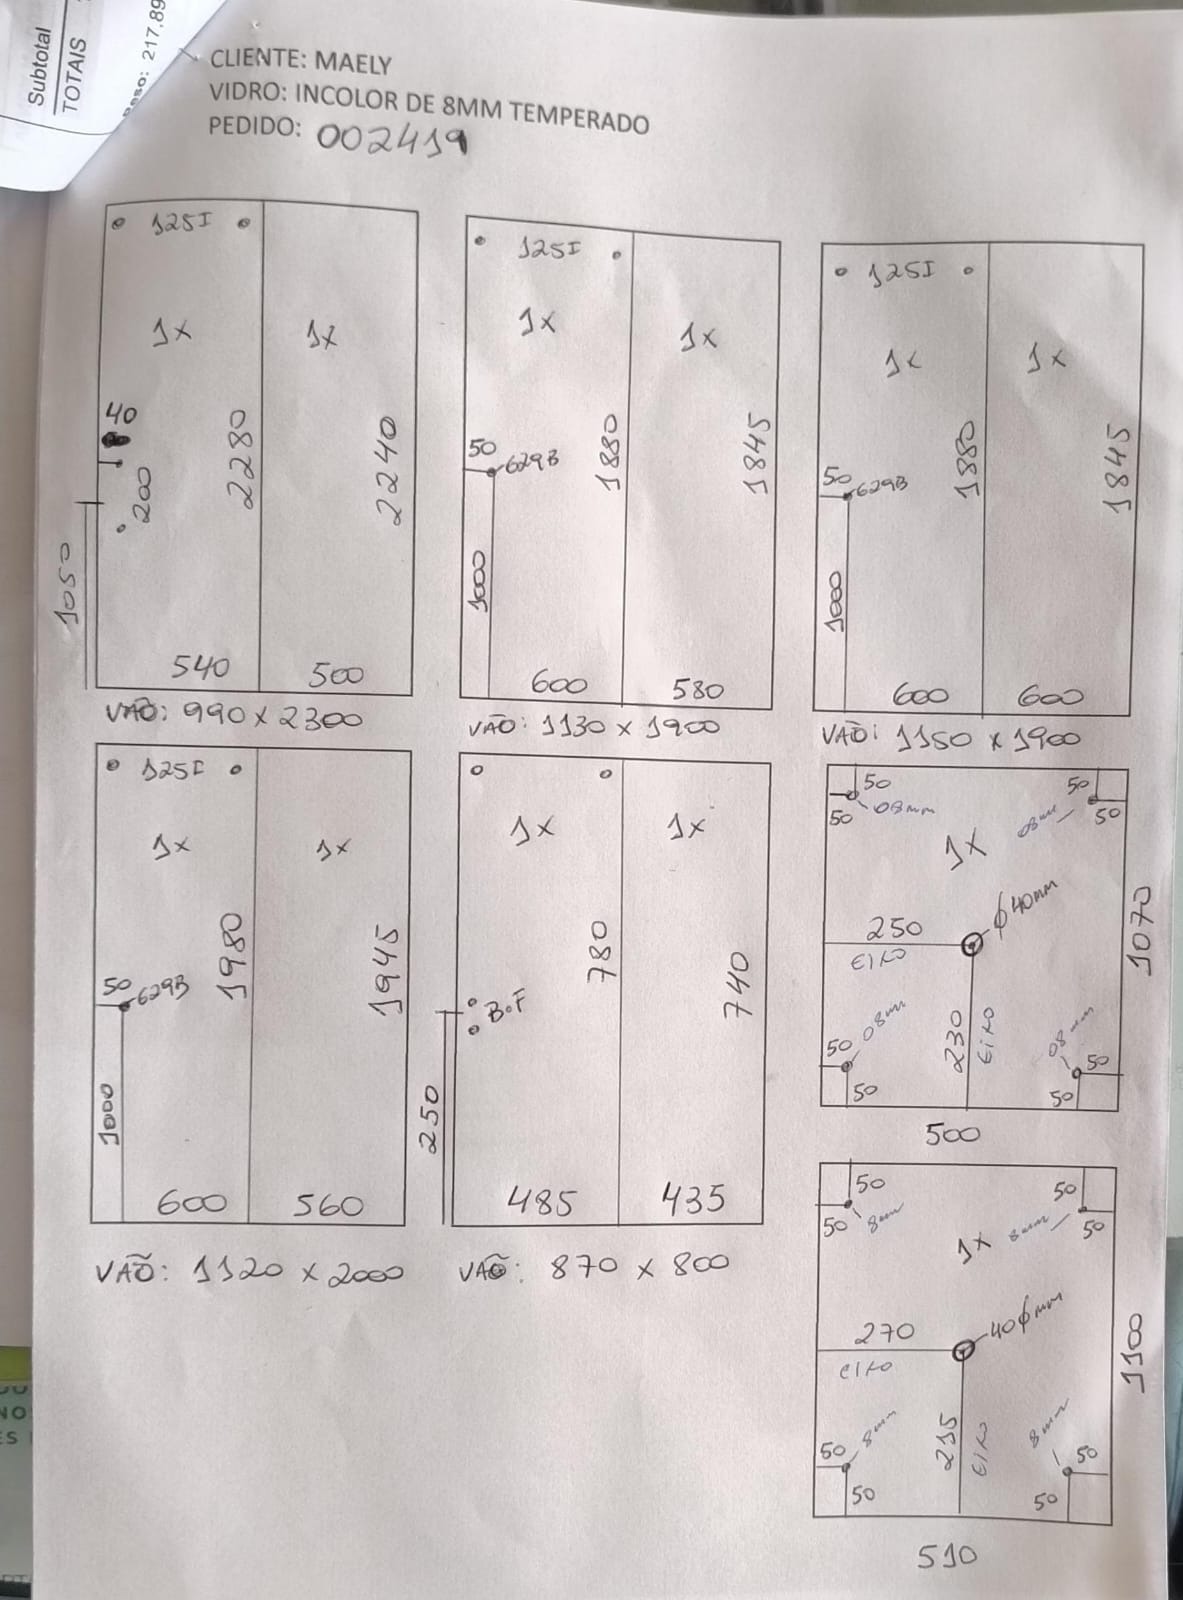 Subtotal
TOTAIS
217.89
CLIENTE: MAELY
VIDRO: INCOLOR DE 8MM TEMPERADO
PEDIDO: 002419
125I
1x
1x
40
200
2280
2240
1050
540
500
VÃO: 990 x 2300
125I
1x
1x
50
629B
1880
1845
1000
600
580
VÃO: 1130 x 1900
125I
1x
1x
50
629B
1880
1845
1000
600
600
VÃO: 1150 x 1900
125I
1x
1x
50
629B
1980
1945
1000
600
560
VÃO: 1120 x 2000
1x
1x
780
740
B.F
250
485
435
VÃO: 870 x 800
50
50
08mm
50
50
08mm
1x
250
EIXO
ϕ40mm
1070
230
EIXO
50
08mm
50
08mm
50
50
500
50
50
8mm
50
50
8mm
1x
270
EIXO
40ϕmm
1100
235
EIXO
50
8mm
50
8mm
50
50
510